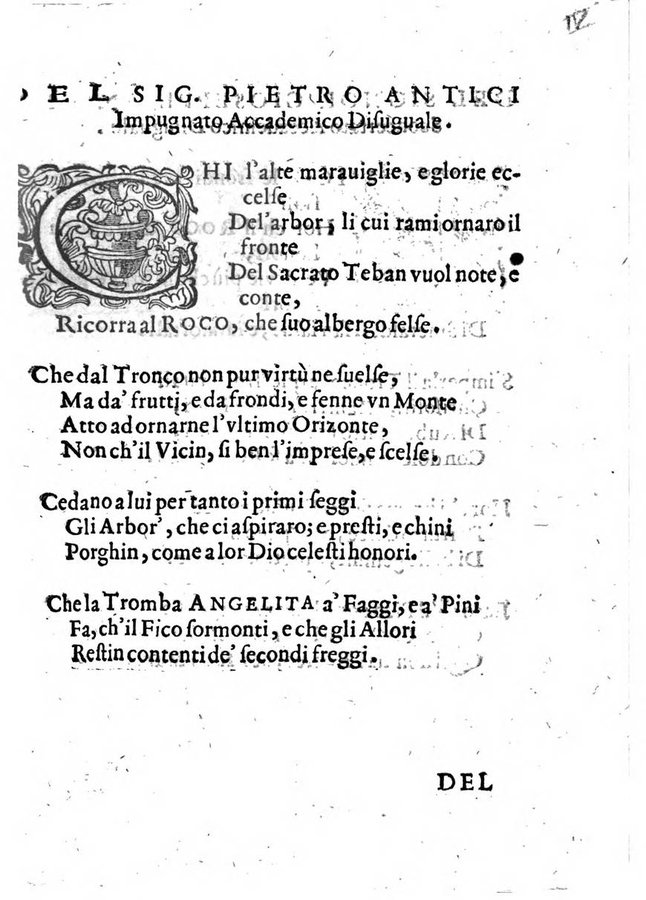 DEL SIG. PIETRO ANTICI
Impugnato Accademico Disuguale.
CHI l'alte marauiglie, e glorie ec-
celse
Del'arbor, li cui rami ornaro il
fronte
Del Sacrato Teban vuol note, e
conte,
Ricorra al ROCO, che suo albergo felse.
Che dal Tronco non pur virtù ne suelse,
Ma da' frutti, e da frondi, e fenne vn Monte
Atto ad ornarne l'vltimo Orizonte,
Non ch'il Vicin, si ben l'imprese, e scelse.
Cedano a lui per tanto i primi seggi
Gli Arbor', che ci aspiraro; e presti, e chini
Porghin, come a lor Dio celesti honori.
Che la Tromba ANGELITA a' Faggi, e a' Pini
Fa, ch'il Fico sormonti, e che gli Allori
Restin contenti de' secondi freggi.
DEL